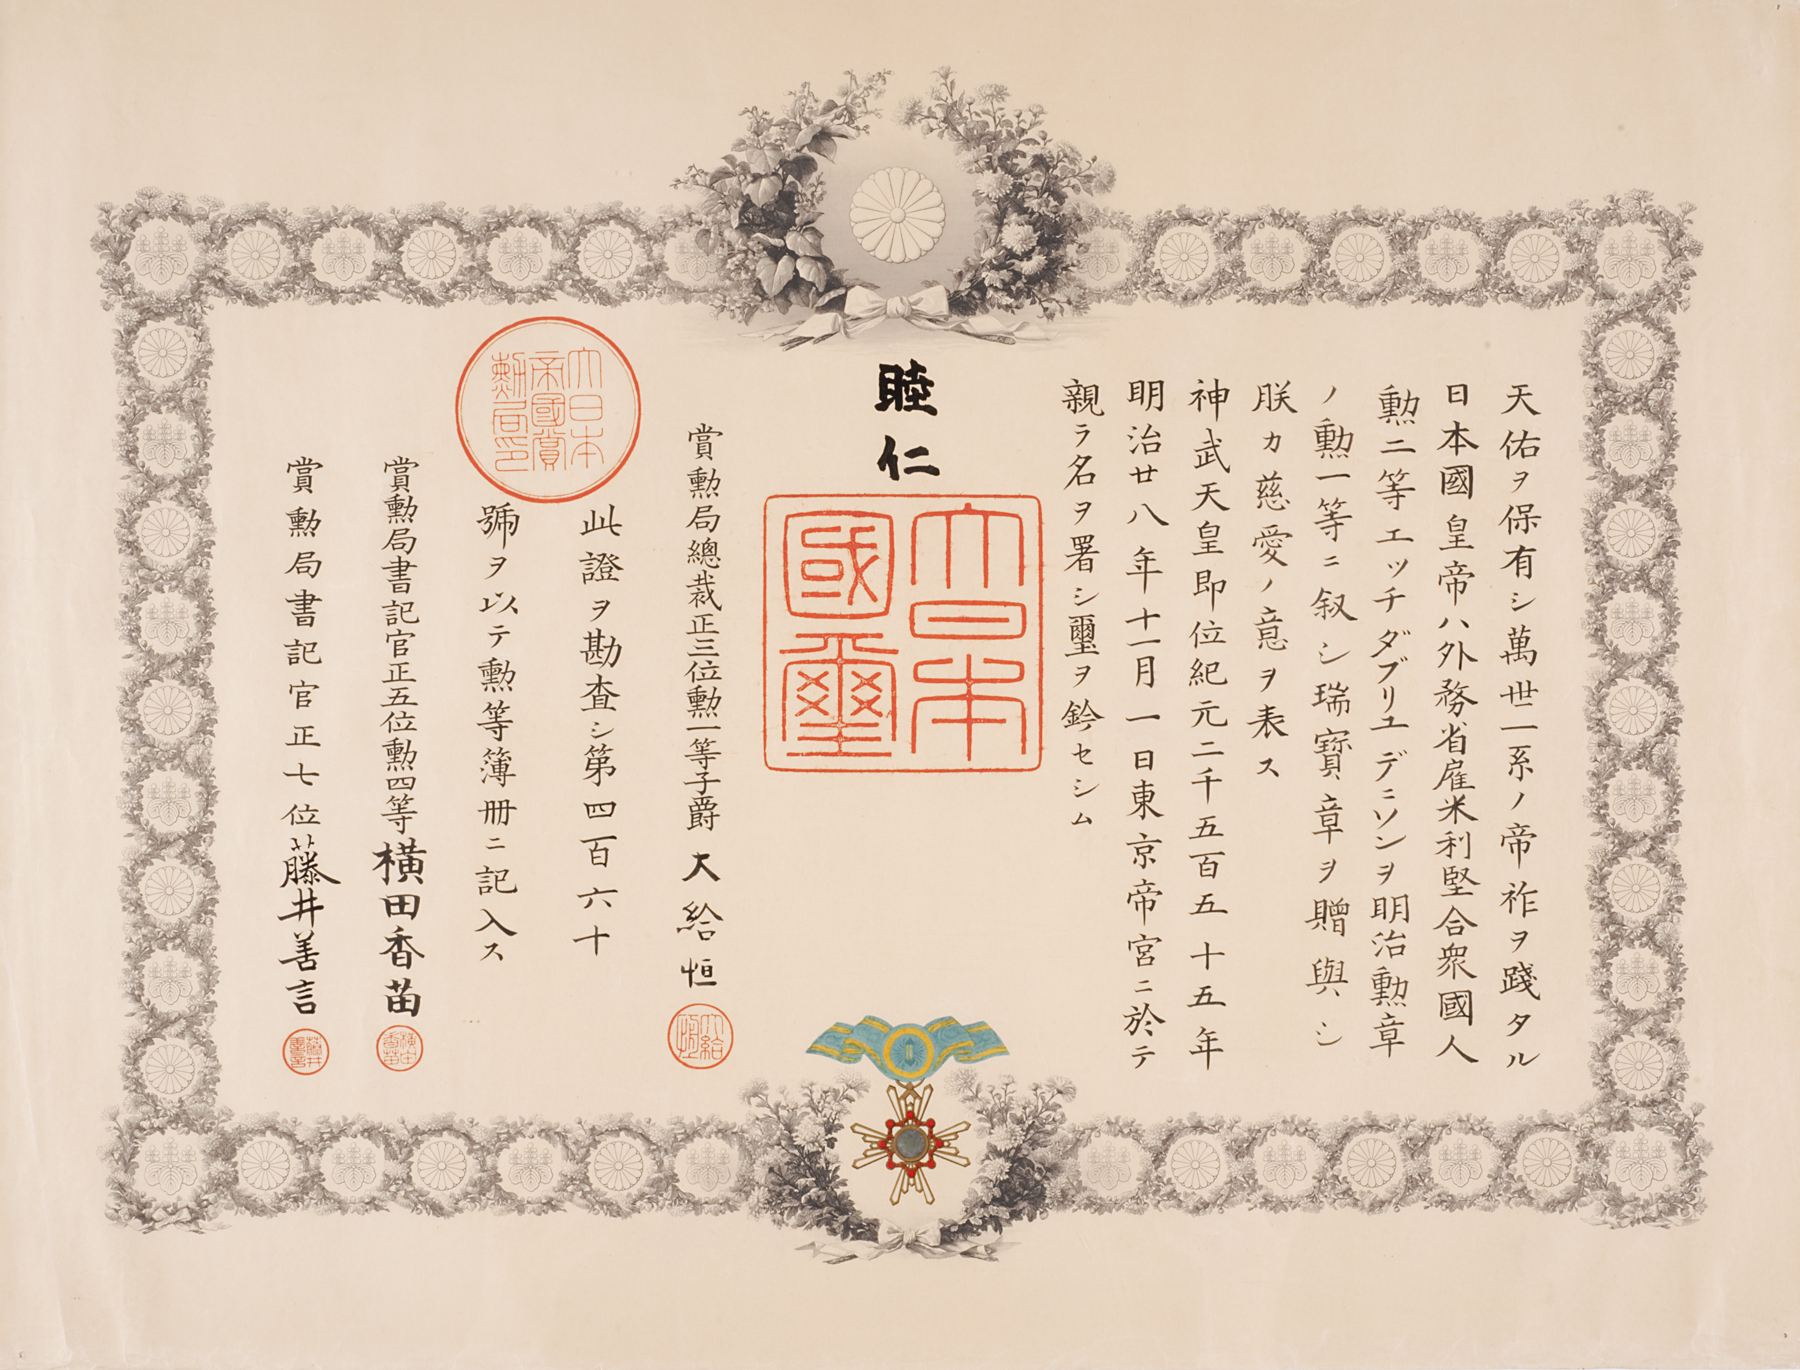 天佑ヲ保有シ萬世一系ノ帝祚ヲ踐タル
日本國皇帝ハ外務省雇米利堅合衆國人
勲二等エッチダブリユデニソンヲ明治勲章
ノ勲一等ニ叙シ瑞寶章ヲ贈與シ
朕カ慈愛ノ意ヲ表ス
神武天皇即位紀元二千五百五十五年
明治廿八年十一月一日東京帝宮ニ於テ
親ラ名ヲ署シ璽ヲ鈐セシム
睦仁
大日本
國璽
賞勲局總裁正三位勲一等子爵大給恒
大給
恒
此證ヲ勘査シ第四百六十
號ヲ以テ勲等簿冊ニ記入ス
大日本
帝國賞
勲局印
賞勲局書記官正五位勲四等横田香苗
横田
香苗
賞勲局書記官正七位藤井善言
藤井
善言